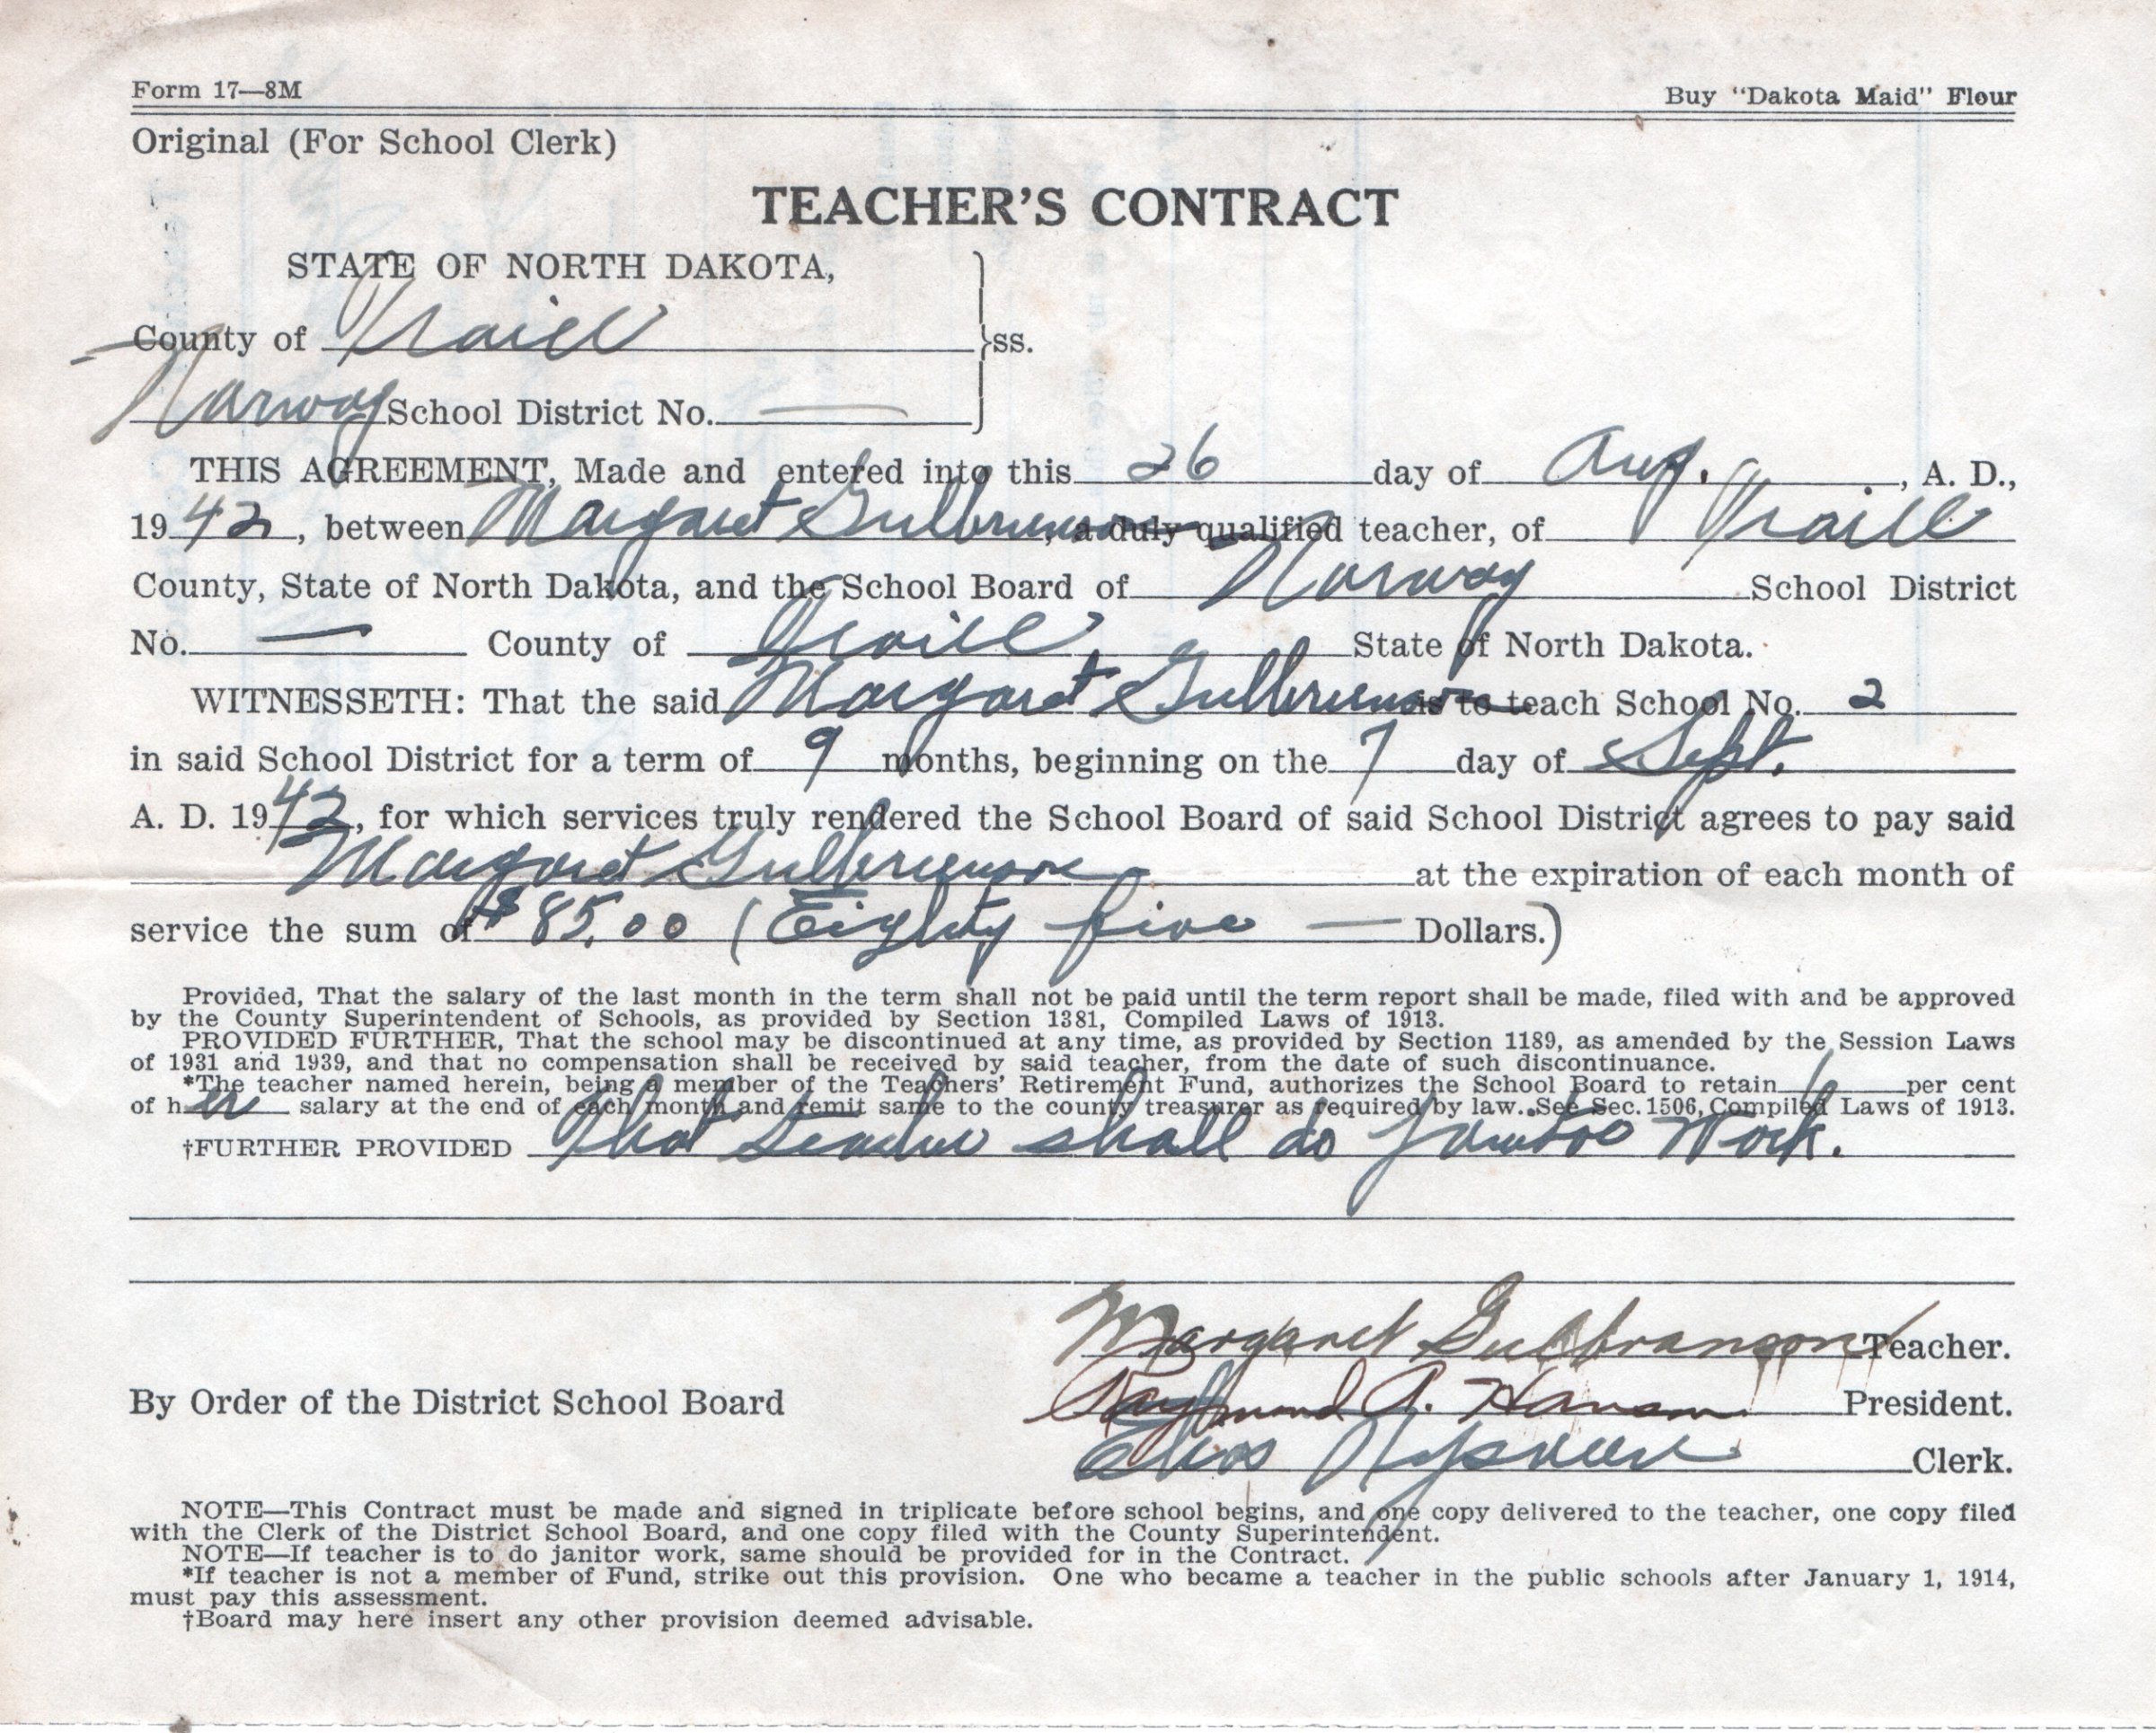 Form 17—8M Buy "Dakota Maid" Flour
Original (For School Clerk)
TEACHER'S CONTRACT
STATE OF NORTH DAKOTA,
County of Traill ss.
Norway School District No. —
THIS AGREEMENT, Made and entered into this 26 day of Aug. , A. D.,
1942, between Margaret Gulbrunson, a duly qualified teacher, of Traill
County, State of North Dakota, and the School Board of Norway School District
No. — County of Traill, State of North Dakota.
WITNESSETH: That the said Margaret Gulbrunson is to teach School No. 2
in said School District for a term of 9 months, beginning on the 7 day of Sept.
A. D. 1942, for which services truly rendered the School Board of said School District agrees to pay said
Margaret Gulbrunson at the expiration of each month of
service the sum of $85.00 (Eighty five — Dollars.)
Provided, That the salary of the last month in the term shall not be paid until the term report shall be made, filed with and be approved
by the County Superintendent of Schools, as provided by Section 1381, Compiled Laws of 1913.
PROVIDED FURTHER, That the school may be discontinued at any time, as provided by Section 1189, as amended by the Session Laws
of 1931 and 1939, and that no compensation shall be received by said teacher, from the date of such discontinuance.
*The teacher named herein, being a member of the Teachers' Retirement Fund, authorizes the School Board to retain per cent
of her salary at the end of each month and remit same to the county treasurer as required by law. See Sec. 1506, Compiled Laws of 1913.
†FURTHER PROVIDED That teacher shall do Janitor Work.
Margaret Gulbranson Teacher.
By Order of the District School Board Raymond A. Hanson President.
Clerk.
NOTE—This Contract must be made and signed in triplicate before school begins, and one copy delivered to the teacher, one copy filed
with the Clerk of the District School Board, and one copy filed with the County Superintendent.
NOTE—If teacher is to do janitor work, same should be provided for in the Contract.
*If teacher is not a member of Fund, strike out this provision. One who became a teacher in the public schools after January 1, 1914,
must pay this assessment.
†Board may here insert any other provision deemed advisable.